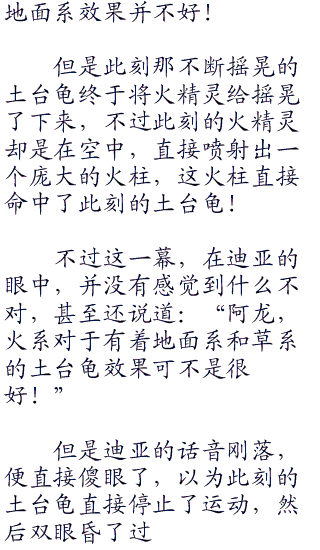 地面系效果并不好！
但是此刻那不断摇晃的
土台龟终于将火精灵给摇晃
了下来，不过此刻的火精灵
却是在空中，直接喷射出一
个庞大的火柱，这火柱直接
命中了此刻的土台龟！
不过这一幕，在迪亚的
眼中，并没有感觉到什么不
对，甚至还说道：“阿龙，
火系对于有着地面系和草系
的土台龟效果可不是很
好！”
但是迪亚的话音刚落，
便直接傻眼了，以为此刻的
土台龟直接停止了运动，然
后双眼昏了过